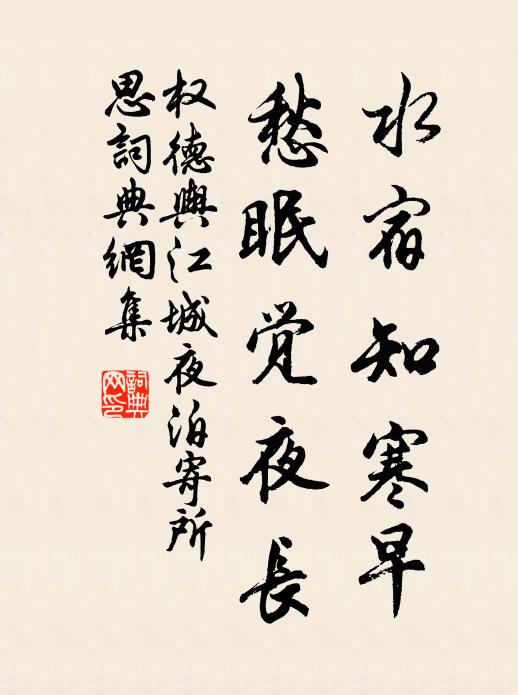 水宿知寒早
愁眠觉夜長
权德輿江城夜泊寄所
思詞典網集
詞典
网印